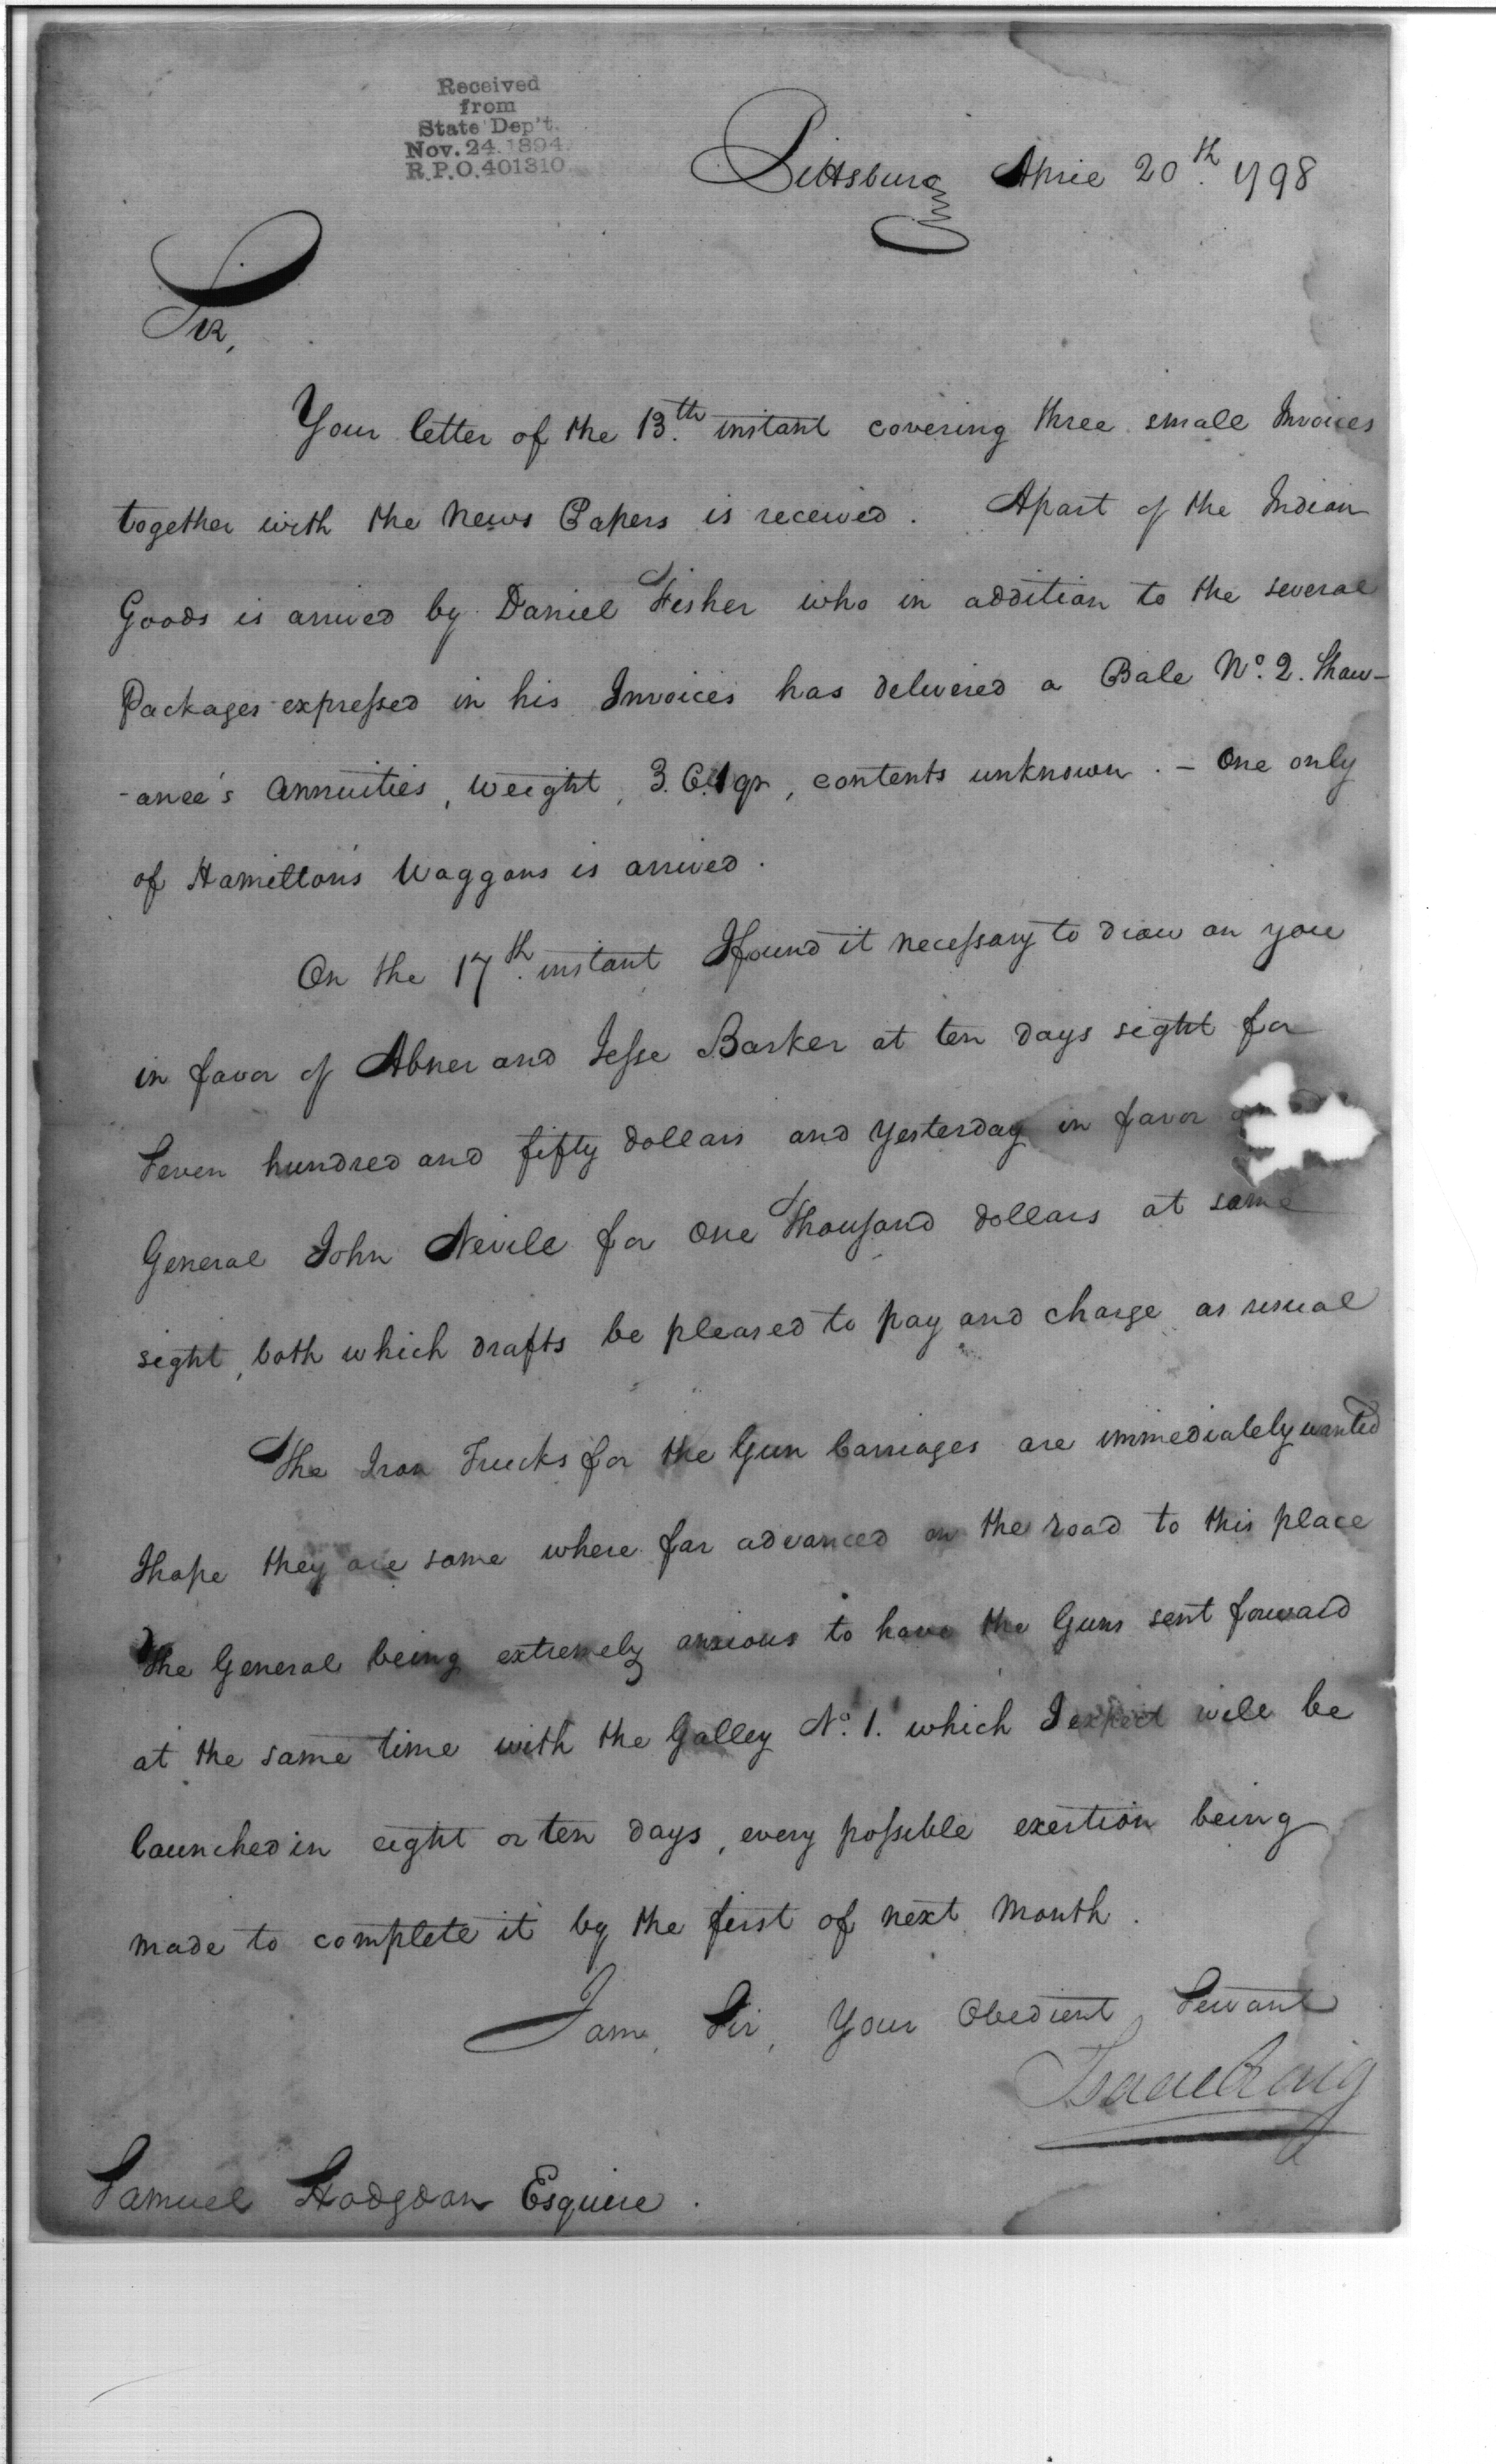 Received
from
State Dep't.
Nov. 24. 1894.
R.P.O. 401310
Pittsburg April 20th. 1798
Sir,
Your letter of the 13th. instant covering three small Invoices
together with the News Papers is received. Apart of the Indian
Goods is arrived by Daniel Fisher who in addition to the several
Packages expreſsed in his Invoices has delivered a Bale No. 2. Shaw-
-anee's Annuities, weight, 3.C.1qr, contents unknown. - One only
of Hamilton's Waggons is arrived.
On the 17th. instant I found it neceſsary to draw on you
in favor of Abner and Jeſse Barker at ten days sight for
Seven hundred and fifty dollars and yesterday in favor
General John Nevile for One Thouſand dollars at same
sight, both which drafts be pleased to pay and charge as usual
The Iron Trucks for the Gun Carriages are immediately wanted
I hope they are some where far advanced on the road to this place
The General being extremely anxious to have the Guns sent forward
at the same time with the Galley No. 1. which I expect will be
launched in eight or ten days, every poſsible exertion being
made to complete it by the first of next Month.
I am, Sir, Your Obedient Servant
Isaac Craig
Samuel Hodgdon Esquire.